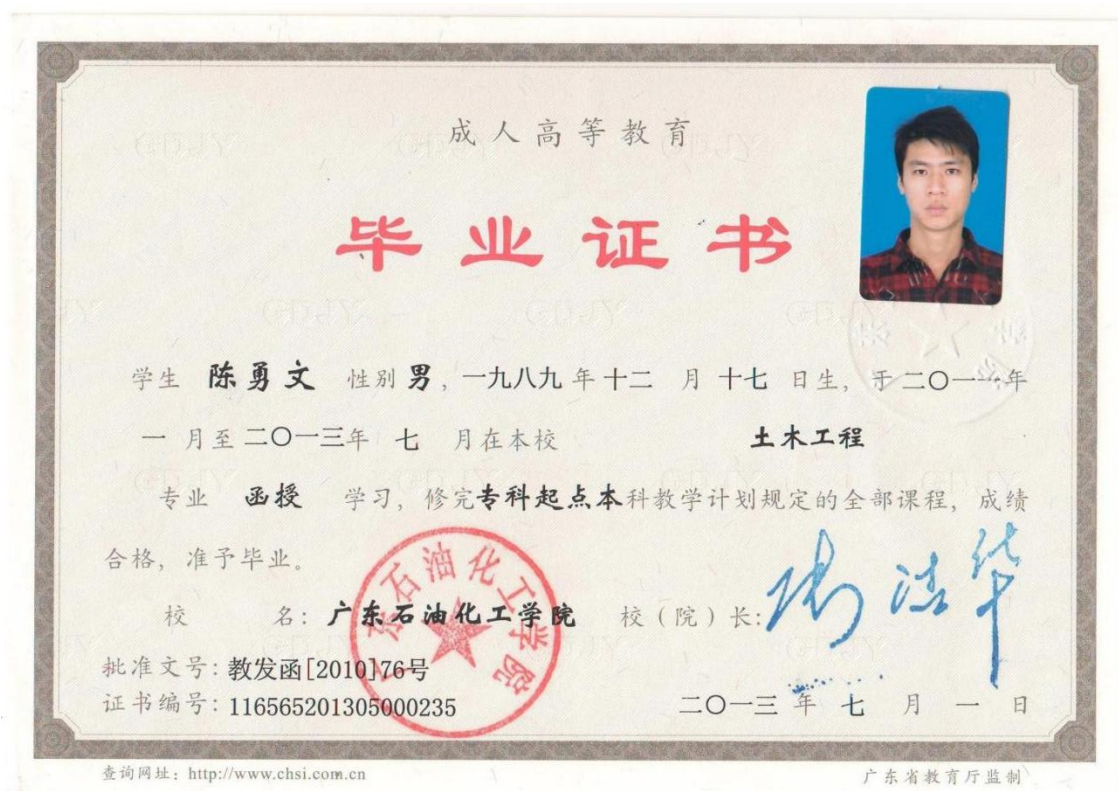 成人高等教育
毕业证书
学生 陈勇文 性别 男，一九八九 年 十二 月 十七 日生，于 二〇一一 年
一 月至 二〇一三 年 七 月在本校 土木工程
专业 函授 学习，修完 专科起点本 科教学计划规定的全部课程，成绩
合格，准予毕业。
校 名：广东石油化工学院 校（院）长：
广东石油化工学院
批准文号：教发函[2010]76号
证书编号：116565201305000235
二〇一三 年 七 月 一 日
查询网址：http://www.chsi.com.cn
广东省教育厅监制
GDJY